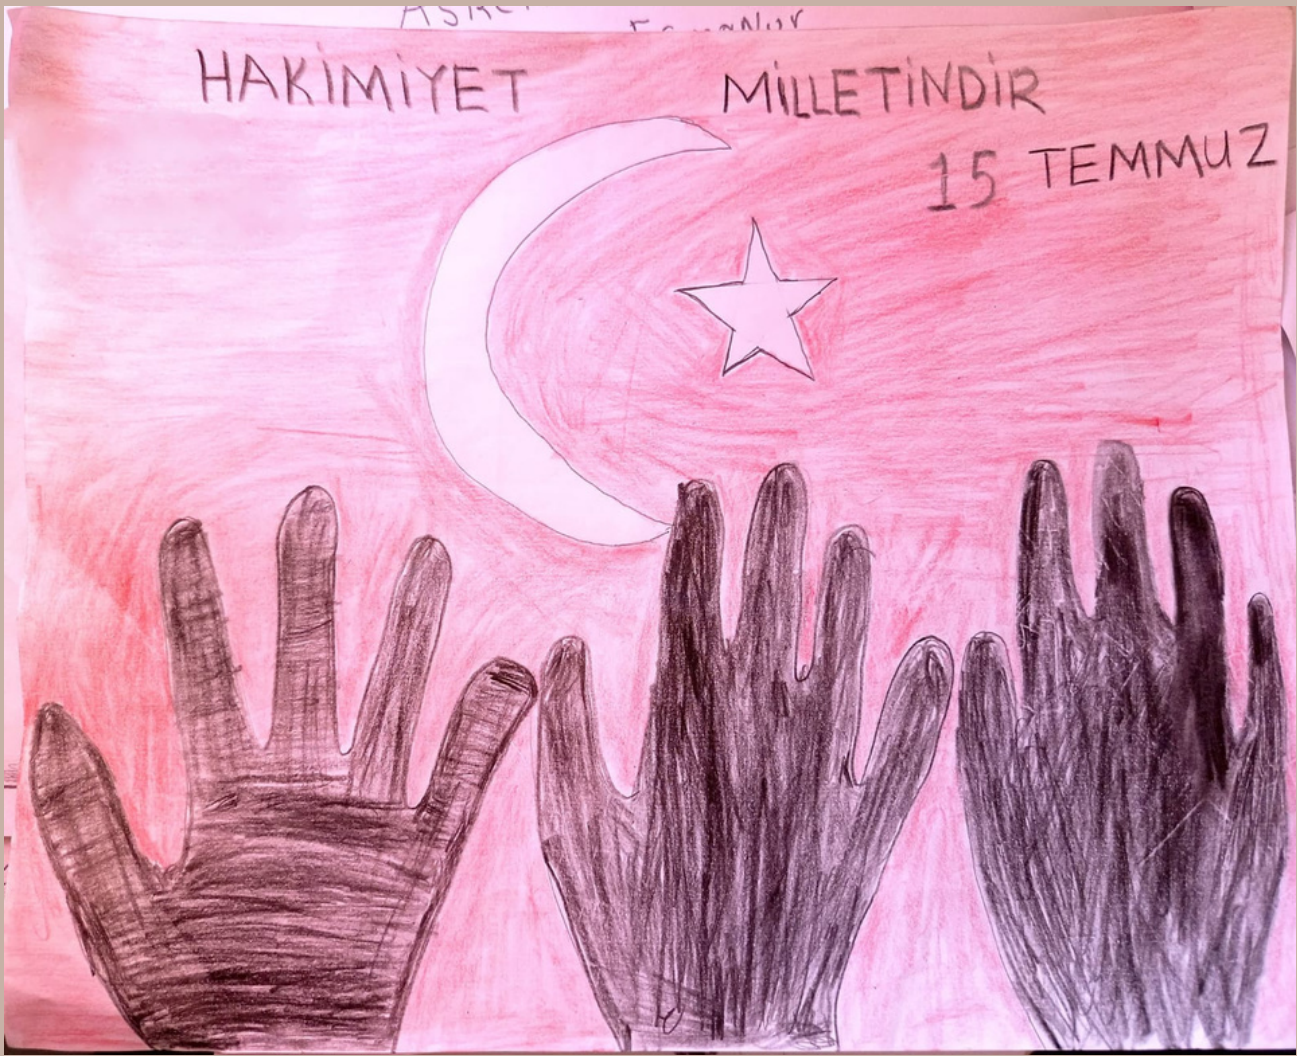 HAKİMİYET MİLLETİNDİR
15 TEMMUZ